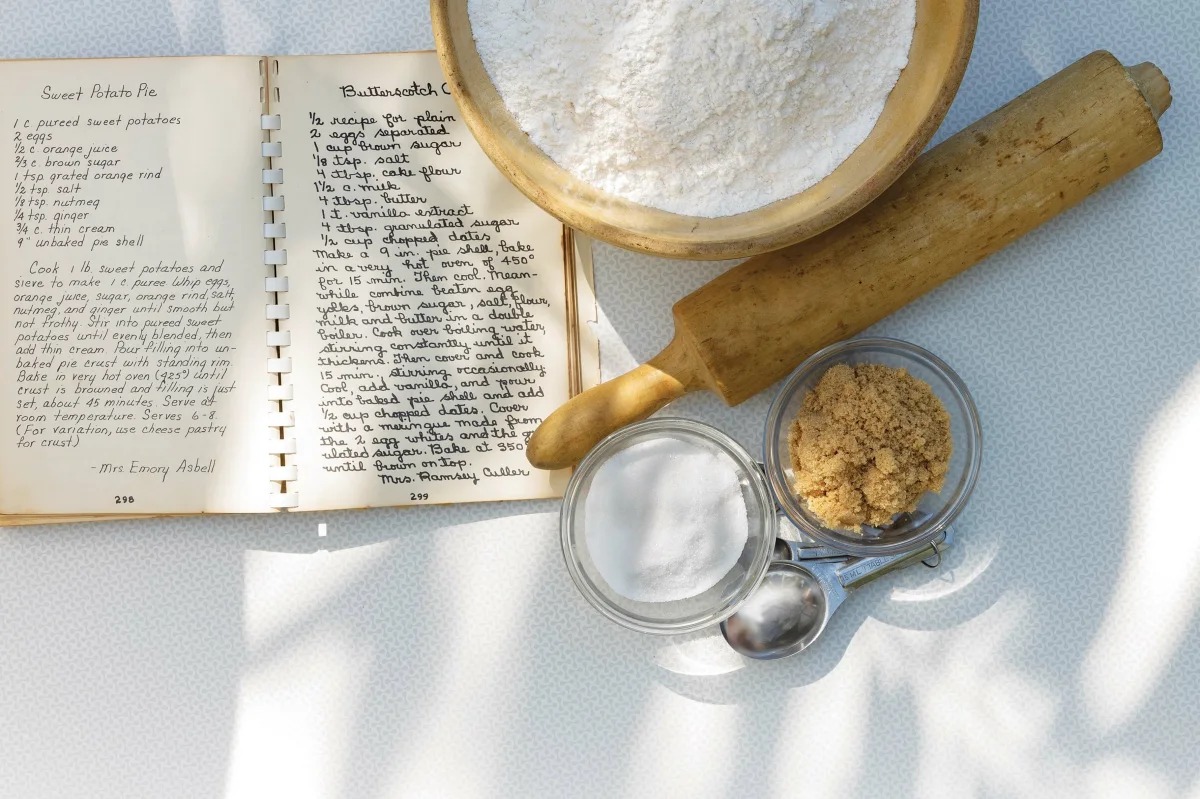 Sweet Potato Pie
1 c pureed sweet potatoes
2 eggs
1/2 c. orange juice
2/3 c. brown sugar
1 tsp. grated orange rind
1/2 tsp. salt
1/8 tsp. nutmeg
1/4 tsp. ginger
3/4 c. thin cream
9" unbaked pie shell
Cook 1 lb. sweet potatoes and
sieve to make 1 c puree. Whip eggs,
orange juice, sugar, orange rind, salt,
nutmeg, and ginger until smooth but
not frothy. Stir into pureed sweet
potatoes until evenly blended, then
add thin cream. Pour filling into un-
baked pie crust with standing rim.
Bake in very hot oven (425°) until
crust is browned and filling is just
set, about 45 minutes. Serve at
room temperature. Serves 6-8.
(For variation, use cheese pastry
for crust.)
-Mrs. Emory Asbell
298
Butterscotch
1/2 recipe for plain
2 eggs separated
1 cup brown sugar
1/8 tsp. salt
4 tbsp. cake flour
1 1/2 c. milk
4 tbsp. butter
1 t. vanilla extract
4 tbsp. granulated sugar
1/2 cup chopped dates
Make a 9 in. pie shell, bake
in a very hot oven of 450°
for 15 min. Then cool. Mean-
while combine beaten egg
yolks, brown sugar, salt, flour,
milk and butter in a double
boiler. Cook over boiling water,
stirring constantly until it
thickens. Then cover and cook
15 min. stirring occasionally.
Cool, add vanilla, and pour
into baked pie shell and add
1/2 cup chopped dates. Cover
with a meringue made from
the 2 egg whites and the
ulated sugar. Bake at 350°
until brown on top.
Mrs. Ramsey Culler
299